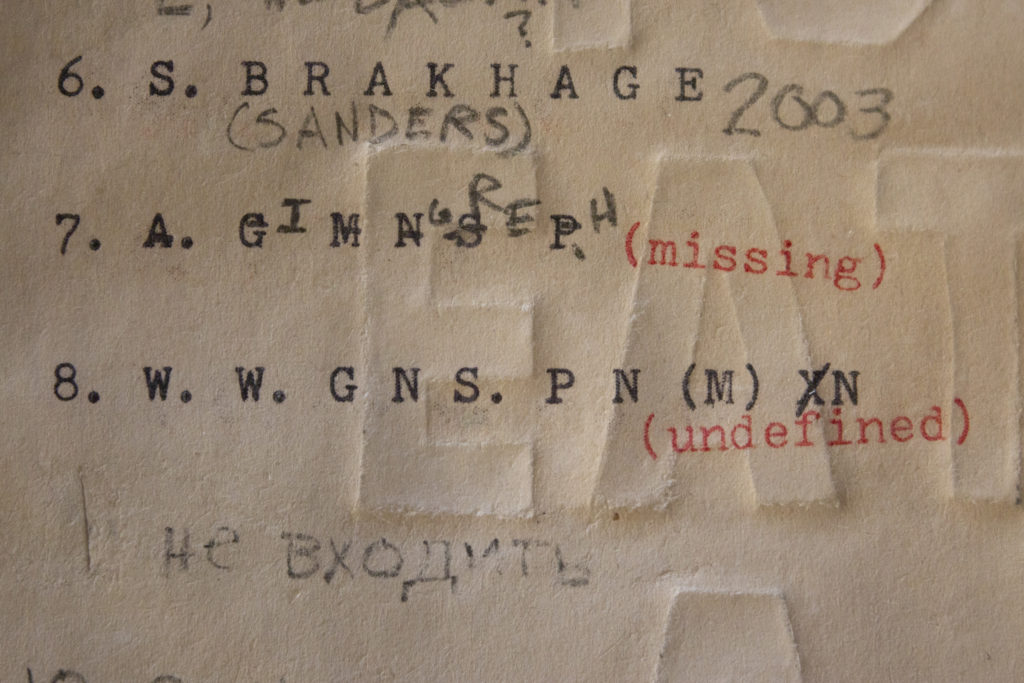 ?
6. S. B R A K H A G E 2003
(SANDERS)
7. A. G I M N G S R E P. H (missing)
8. W. W. G N S. P N (M) XN
(undefined)
не входить
E A T